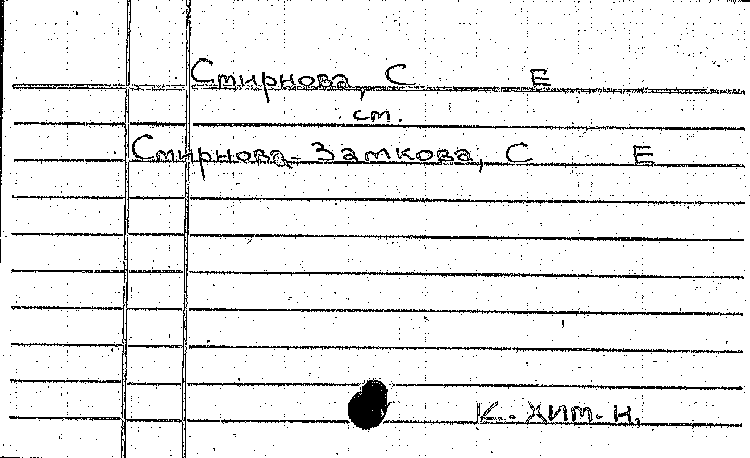 Смирнова, С Е
см.
Смирнова-Замкова, С Е
К. хим. н.